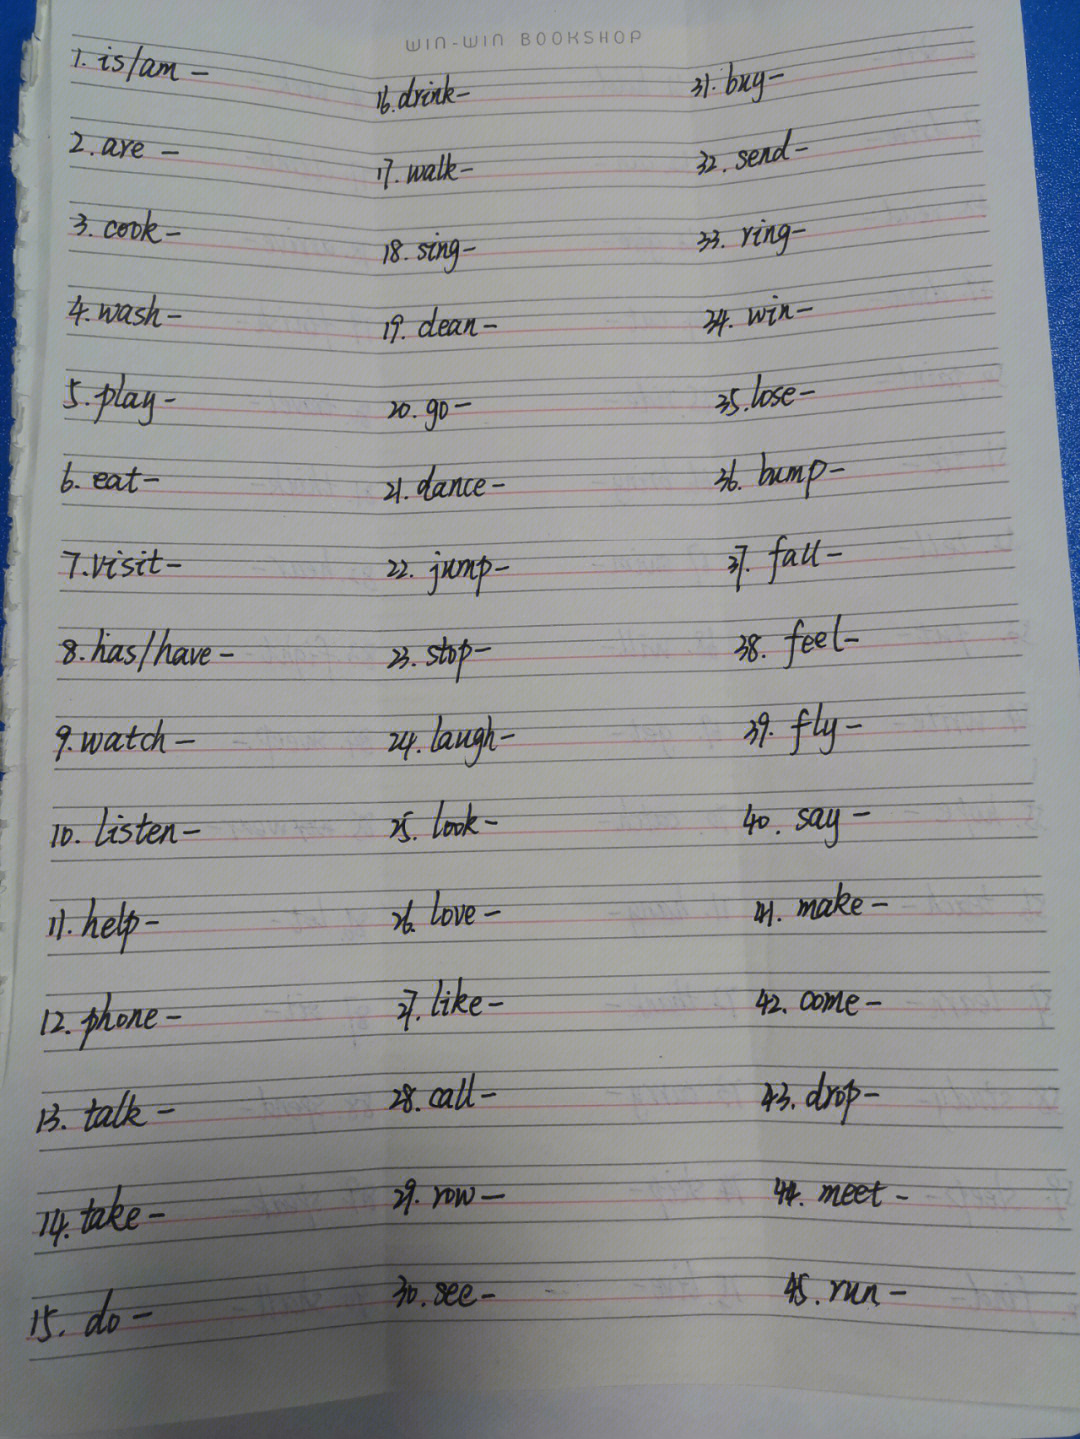 WIN-WIN BOOKSHOP
1. is/am -
2. are -
3. cook -
4. wash -
5. play -
6. eat -
7. visit -
8. has/have -
9. watch -
10. listen -
11. help -
12. phone -
13. talk -
14. take -
15. do -
16. drink -
17. walk -
18. sing -
19. clean -
20. go -
21. dance -
22. jump -
23. stop -
24. laugh -
25. look -
26. love -
27. like -
28. call -
29. row -
30. see -
31. buy -
32. send -
33. ring -
34. win -
35. lose -
36. bump -
37. fall -
38. feel -
39. fly -
40. say -
41. make -
42. come -
43. drop -
44. meet -
45. run -